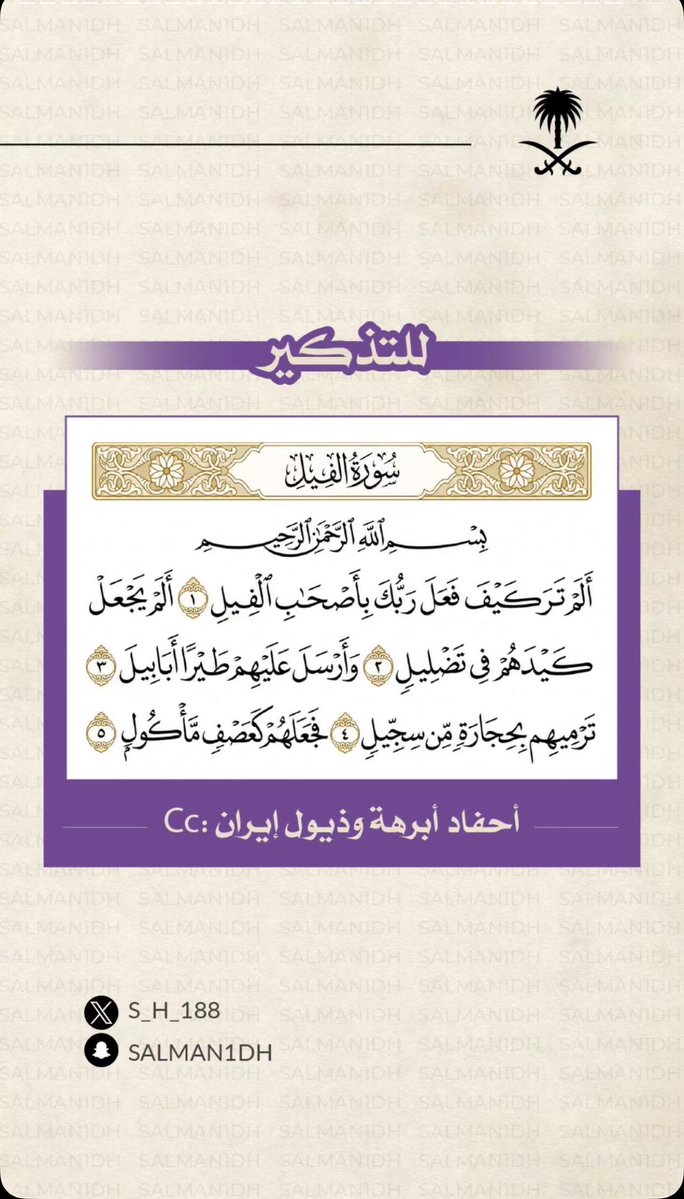 للتذكير
سُورَةُ الفِيلِ
بِسْمِ ٱللَّهِ ٱلرَّحْمَٰنِ ٱلرَّحِيمِ
أَلَمْ تَرَ كَيْفَ فَعَلَ رَبُّكَ بِأَصْحَٰبِ ٱلْفِيلِ ١ أَلَمْ يَجْعَلْ
كَيْدَهُمْ فِى تَضْلِيلٍ ٢ وَأَرْسَلَ عَلَيْهِمْ طَيْرًا أَبَابِيلَ ٣
تَرْمِيهِم بِحِجَارَةٍ مِّن سِجِّيلٍ ٤ فَجَعَلَهُمْ كَعَصْفٍ مَّأْكُولٍ ٥
Cc: أحفاد أبرهة وذيول إيران
S_H_188
SALMAN1DH